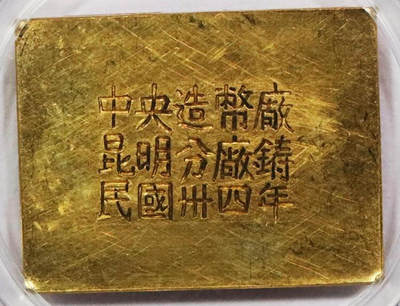 中央造幣廠
昆明分廠鑄
民國卅四年